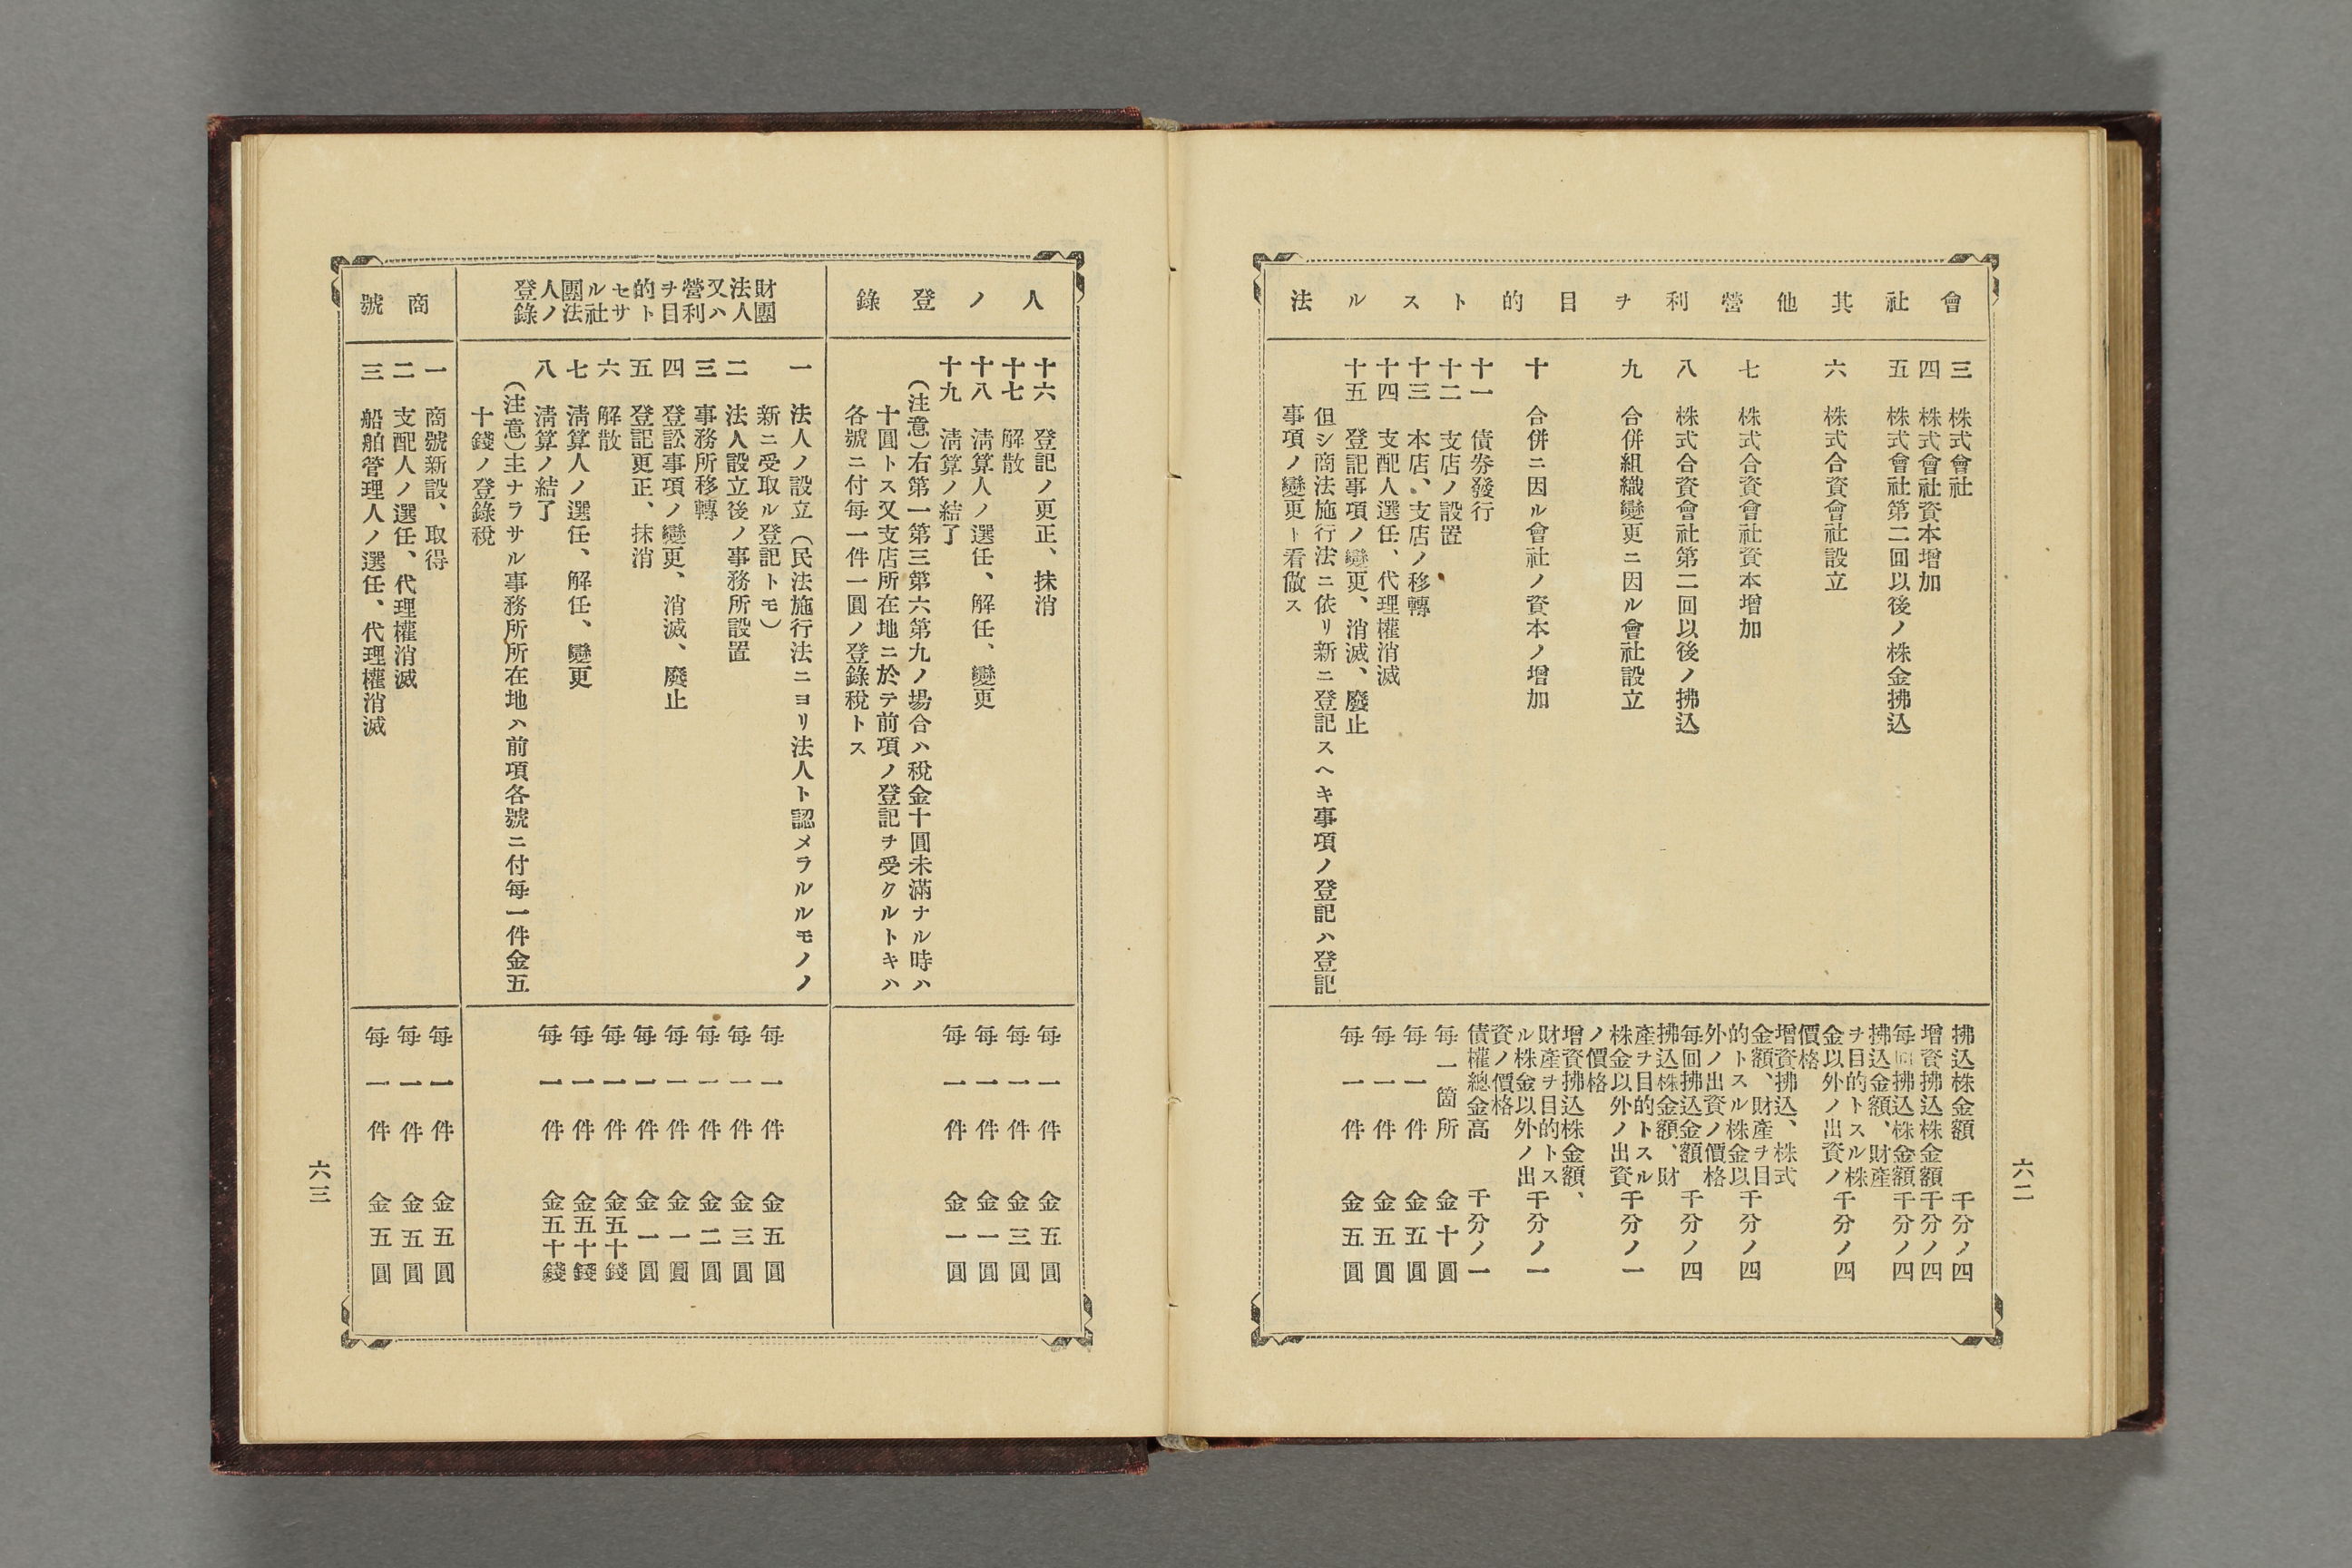 會社其他營利ヲ目的トスル法
三　株式會社
拂込株金額　千分ノ四
四　株式會社資本增加
增資拂込株金額　千分ノ四
五　株式會社第二回以後ノ株金拂込
每回拂込株金額　千分ノ四
六　株式合資會社設立
拂込金額、財產
ヲ目的トスル株
金以外ノ出資ノ
價格
千分ノ四
七　株式合資會社資本增加
增資拂込、株式
金額、財產ヲ目
的トスル株金以
外ノ出資ノ價格
千分ノ四
八　株式合資會社第二回以後ノ拂込
每回拂込金額　千分ノ四
九　合併組織變更ニ因ル會社設立
拂込株金額、財
產ヲ目的トスル
株金以外ノ出資
ノ價格
千分ノ一
十　合併ニ因ル會社ノ資本ノ增加
增資拂込株金額、
財產ヲ目的トス
ル株金以外ノ出
資ノ價格
千分ノ一
十一　債券發行
債權總金高　千分ノ一
十二　支店ノ設置
每一箇所　金十圓
十三　本店、支店ノ移轉
每一件　金五圓
十四　支配人選任、代理權消滅
每一件　金五圓
十五　登記事項ノ變更、消滅、廢止
每一件　金五圓
但シ商法施行法ニ依リ新ニ登記スヘキ事項ノ登記ハ登記
事項ノ變更ト看做ス
六二
人ノ登錄
十六　登記ノ更正、抹消
每一件　金五圓
十七　解散
每一件　金三圓
十八　淸算人ノ選任、解任、變更
每一件　金一圓
十九　淸算ノ結了
每一件　金一圓
（注意）右第一第三第六第九ノ場合ハ稅金十圓未滿ナル時ハ
十圓トス又支店所在地ニ於テ前項ノ登記ヲ受クルトキハ
各號ニ付每一件一圓ノ登錄稅トス
財團
法人
又ハ
營利
ヲ目
的ト
セサ
ル社
團法
人ノ
登錄
一　法人ノ設立（民法施行法ニヨリ法人ト認メラルルモノノ
新ニ受取ル登記トモ）
每一件　金五圓
二　法人設立後ノ事務所設置
每一件　金三圓
三　事務所移轉
每一件　金二圓
四　登訟事項ノ變更、消滅、廢止
每一件　金一圓
五　登記更正、抹消
每一件　金一圓
六　解散
每一件　金五十錢
七　淸算人ノ選任、解任、變更
每一件　金五十錢
八　淸算ノ結了
每一件　金五十錢
（注意）主ナラサル事務所所在地ハ前項各號ニ付每一件金五
十錢ノ登錄稅
商號
一　商號新設、取得
每一件　金五圓
二　支配人ノ選任、代理權消滅
每一件　金五圓
三　船舶管理人ノ選任、代理權消滅
每一件　金五圓
六三